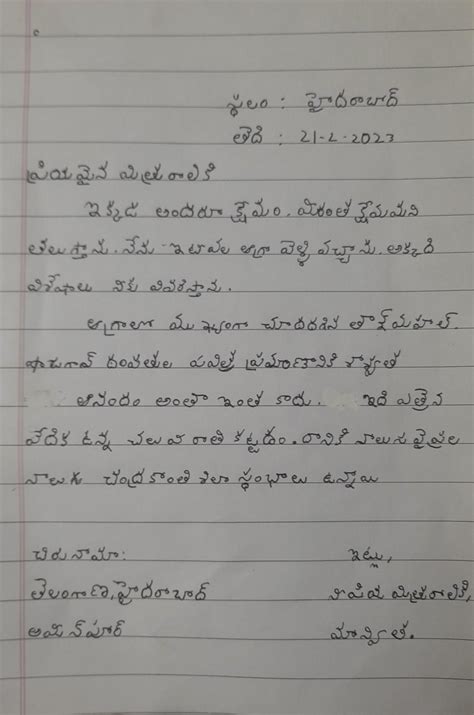 స్థలం : హైదరాబాద్
తేది : 21-2-2023
ప్రియమైన మిత్రురాలికి
ఇక్కడ అందరూ క్షేమం. మీరంత క్షేమమని
తలుస్తాను. నేను ఇటీవల ఆగ్రా వెళ్ళి వచ్చాను. అక్కడి
విశేషాలు నీకు వివరిస్తాను.
ఆగ్రాలో ముఖ్యంగా చూడదగిన తాజ్ మహల్.
దంపతుల పవిత్ర ప్రమాణానికి శాశ్వత
ఆనందం అంతా ఇంత కాదు. ఇది ఎత్తైన
వేదిక ఉన్న చలువ రాతి కట్టడం. దానికి నాలుగు వైపుల
నాలుగు చంద్రకాంత శిలా స్థంభాలు ఉన్నాయి
చిరునామా:
ఇట్లు,
తెలంగాణ, హైదరాబాద్
నీ ప్రియ మిత్రురాలికి,
అమీన్‌పూర్
మాన్విత.